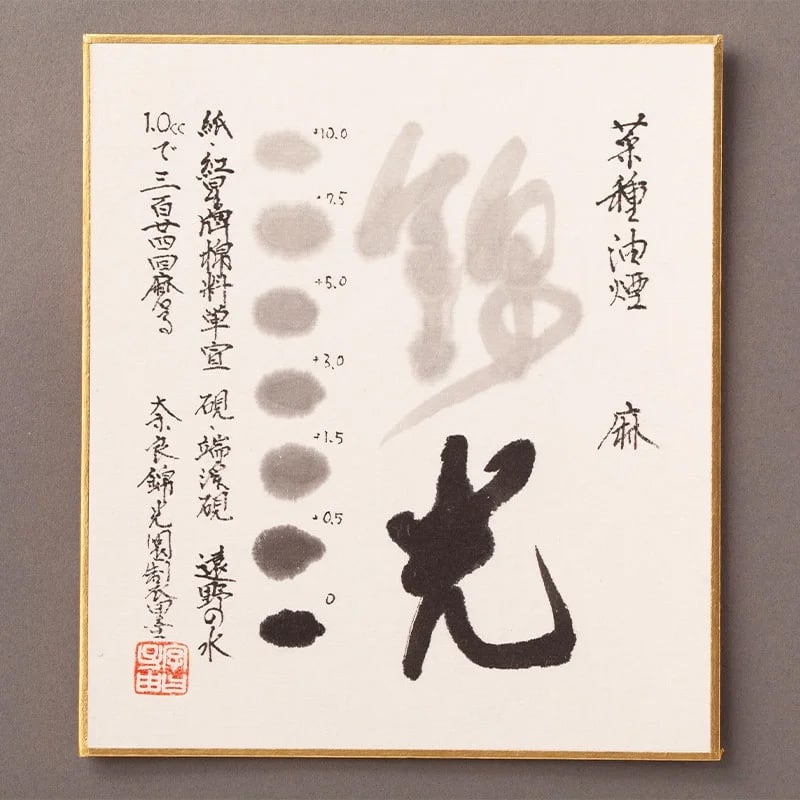 菜種油煙　麻
錦光
+10.0
+7.5
+5.0
+3.0
+1.5
+0.5
0
紙・紅星牌棉料単宣　硯・端渓硯　遠野の水
1.0ccで三百廿四回麻る
奈良錦光園製墨